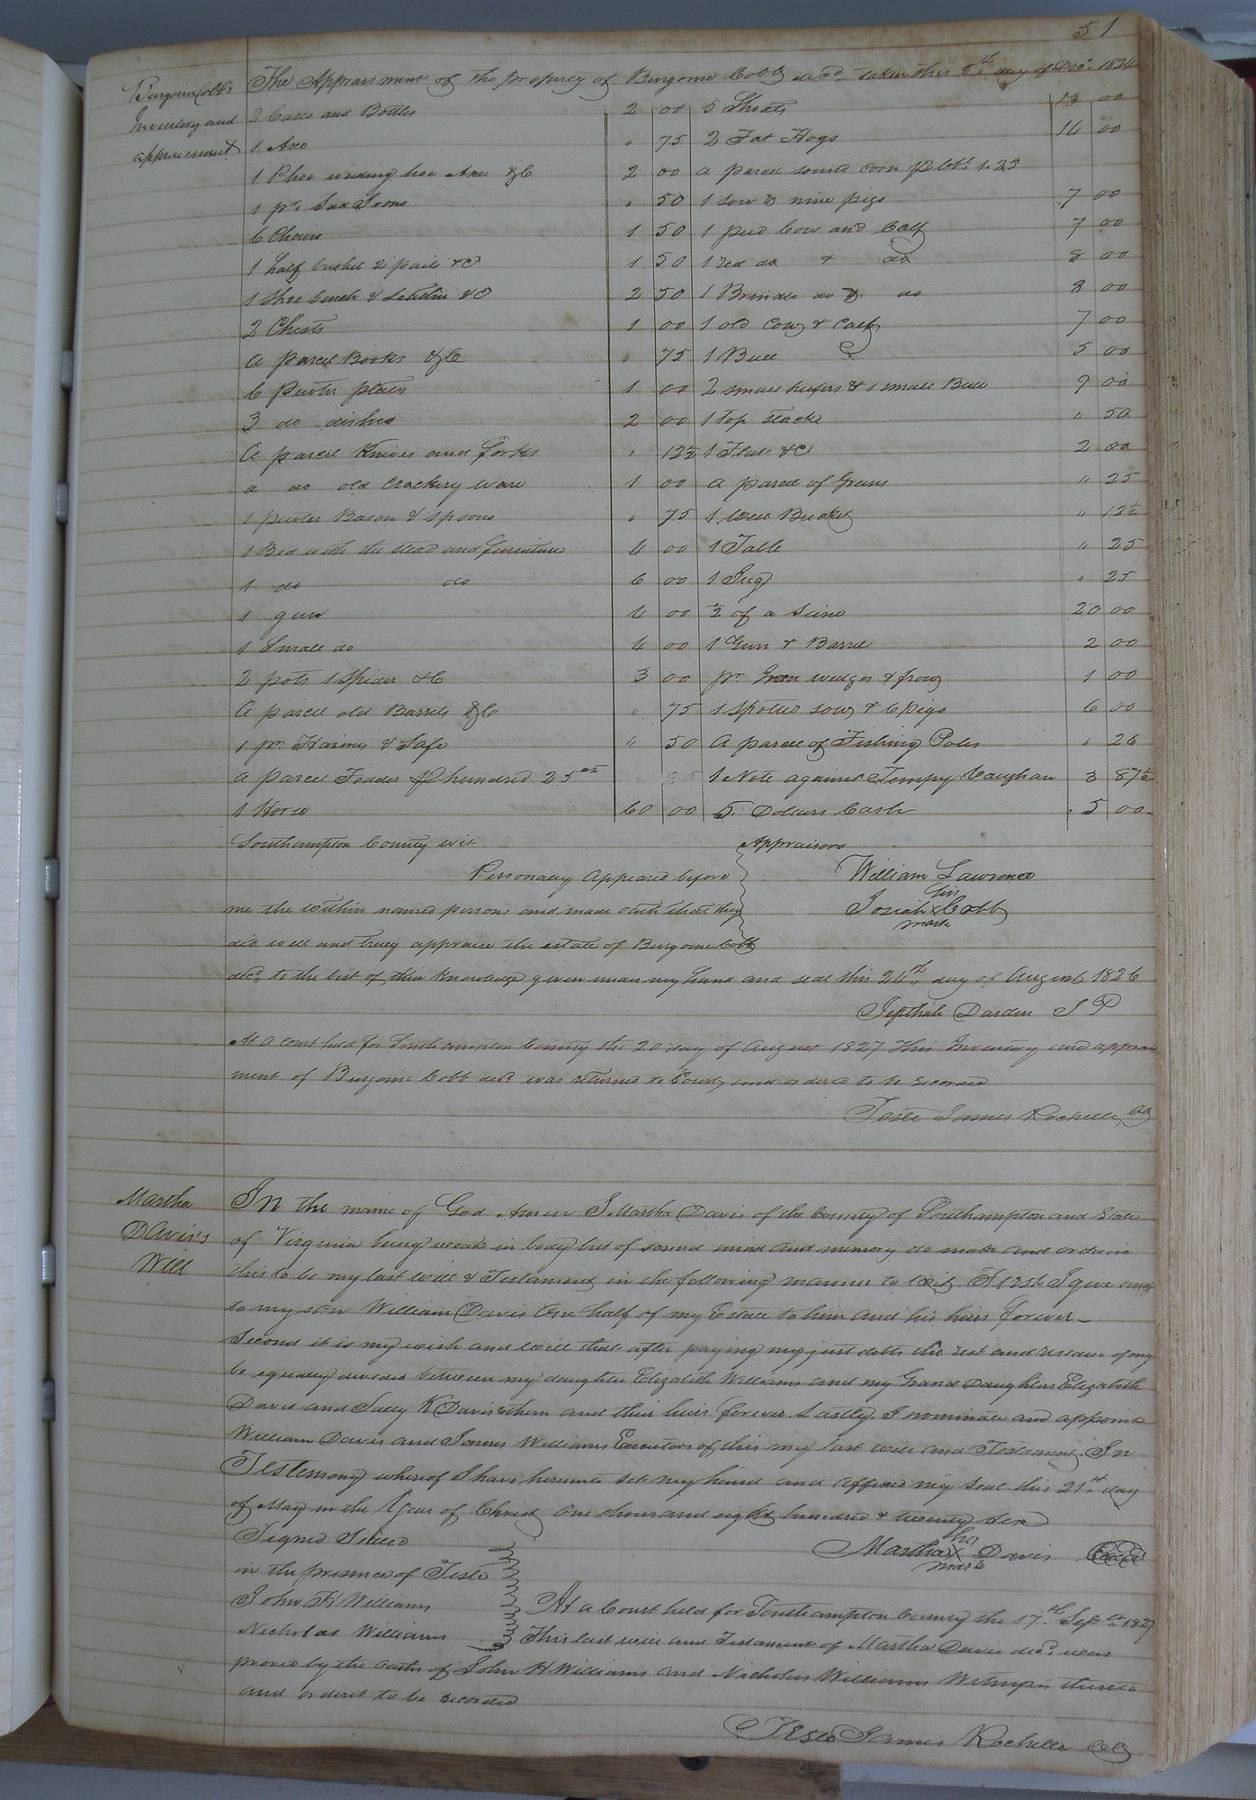 51
Burgoine Cobb's
Inventory and
appraisement
The Appraisment of the property of Burgoine Cobb decd. taken this 8th day of Decr. 1824
2 Cases and Bottles 2 00
5 Shoats 13 00
1 Axe " 75
2 Fat Hogs 14 00
1 weeding hoe Axe &C 2 00
a parcel corn 1.25
1 pr " 50
1 Sow & nine pigs 7 00
6 Chairs 1 50
1 pied Cow and Calf 7 00
1 half bushel 2 pails &C 1 50
1 red do & do 8 00
1 Shoe bench & Leather &C 2 50
1 Brindle do & do 8 00
2 Chests 1 00
1 old Cow & Calf 7 00
A parcel Books &C " 75
1 Bull 5 00
6 pewter plates 1 00
2 small heifers & 1 small Bull 9 00
3 do dishes 2 00
1 top stack " 50
A parcel Knives and forks " 12½
1 &C 2 00
a do old Crockery ware 1 00
a parcel of " 25
1 pewter Bason & spoons " 75
1 Bucket " 12½
1 Bed with the stead and furniture 4 00
1 Table " 25
1 do do 6 00
1 Jug " 25
1 gun 4 00
½ of a Seine 20 00
1 Small do 4 00
1 Gum & Barrel 2 00
2 pots 1 Spider &C 3 00
pr Iron wedges & frow 1 00
A parcel old Barrels &C " 75
1 spotted sow & 6 pigs 6 00
1 pr. & Safe " 50
A parcel of Fishing Poles " 26
A parcel Foader hundred 25
1 Note against Tempy Vaughan 3 87½
1 Horse 60 00
5 Dollars Cash 5 00
Southampton County wit
Appraisors
Personally Appeared before
William Lawrence
me the within named persons and made oath that they
his
Josiah X Cobb
mark
did well and truly appraise the estate of Burgoine Cobb
decd. to the best of thir Knowledge given under my hand and seal this 24th day of August 1826
Jepthah Darden J P
At a court held for Southampton County the 20 day of August 1827 This Inventory and apprais
ment of Burgoine Cobb decd was returned to Court and ordered to be recorded
Teste James Rochelle CC
Martha
DAvis's
Will
In the name of God Amen I Martha Davis of the County of Southampton and State
of Virginia being weak in body but of sound mind and memory do make and ordain
this to be my last will & Testament in the following manner to wit First I give
to my son William Davis One half of my Estate to him and his heirs forever
Second it is my wish and will that after paying my just debts the rest and residue of my
be equally divided between my daughter Elizabeth Williams and my Grand Daughters Elizabeth
Davis and Sally K Davis them and their heirs forever Lastly I nominate and appoint
William Davis and James Williams Executors of this my last will and Testament. In
Testemony whereof I have hereunto set my hand and affixed my Seal this 21st day
of May in the Year of Christ One thousand eight hundred & twenty six
Signed Sealed
her
Martha X Davis Seal
mark
in the presence of Teste
John H Williams
At a Court held for Southampton County the 17th Sept 1827
Nicholas Williams
This last will and Testament of Martha Davis decd. was
proved by the oaths of John H Williams and Nicholas Williams thereto
and ordered to be recorded
Teste James Rochelle CC